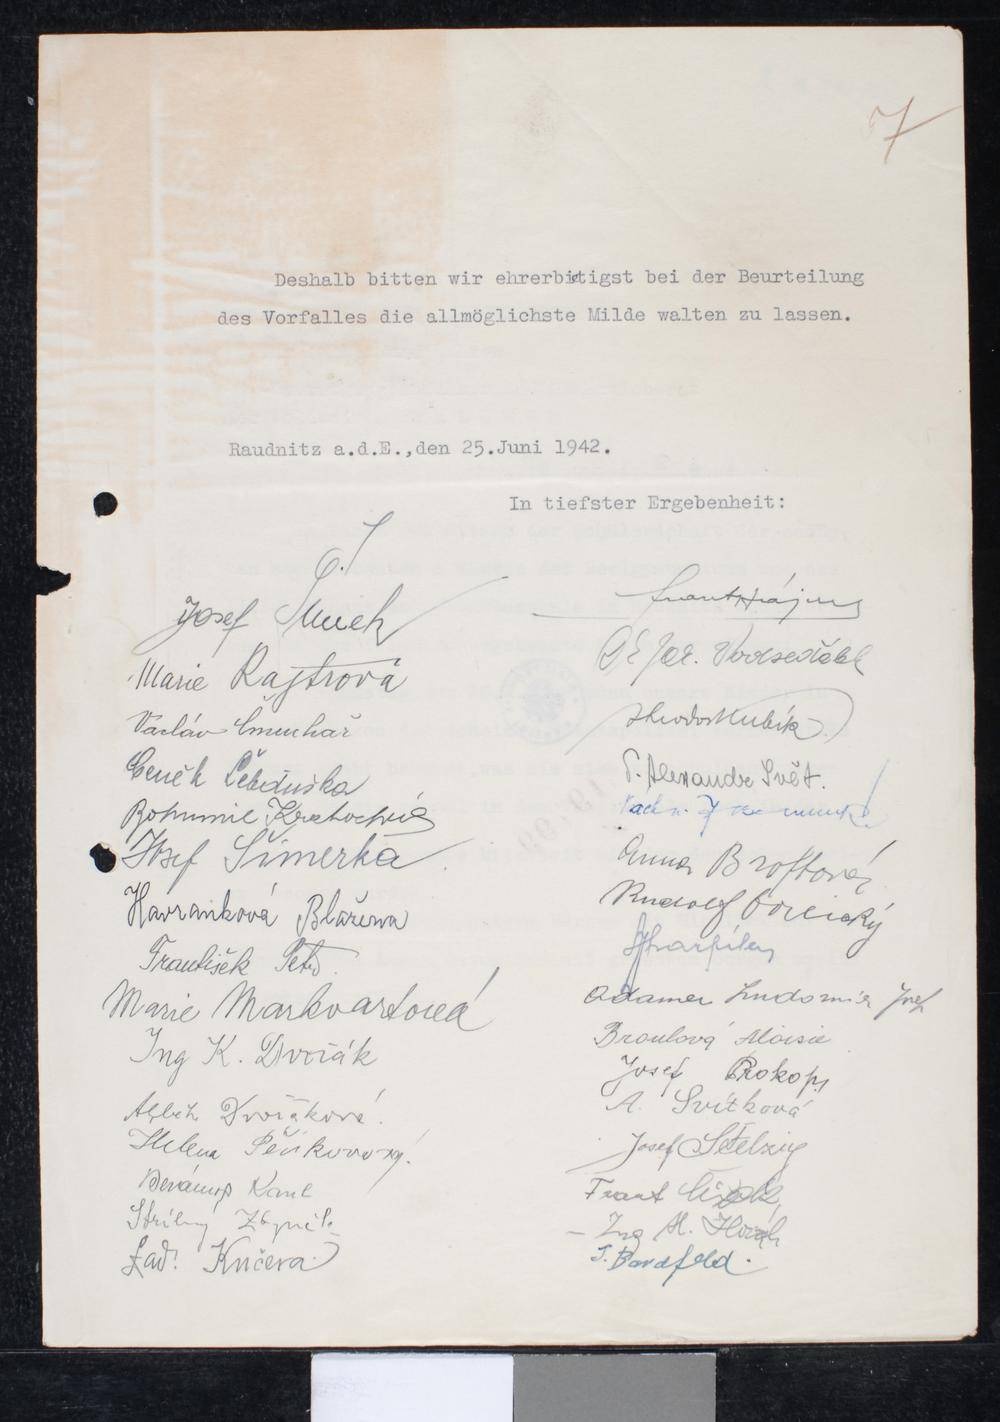 7
Deshalb bitten wir ehrerbietigst bei der Beurteilung
des Vorfalles die allmöglichste Milde walten zu lassen.
Raudnitz a.d.E.,den 25.Juni 1942.
In tiefster Ergebenheit:
Josef
Marie Rajtrová
Václav
Čeněk Leběduška
Bohumil Kratochvíl
Josef Šimerka
Havránková Blažena
František Petr
Marie Markvartová
Ing K. Dvořák
Dvořáková
Helena
Karel
Stříbrný Zbyněk
Lad. Kučera
Frant Hájny
Dr Jar. Vodseďálek
Theodor Kubík
P. Alexandr Svět.
Anna Brožtová
Rudolf
Adamec Ludomír Josef
Broulová Marie
Josef Prokop
A. Svítková
Josef Stelzig
Frant
Ing
J. Bondfeld.